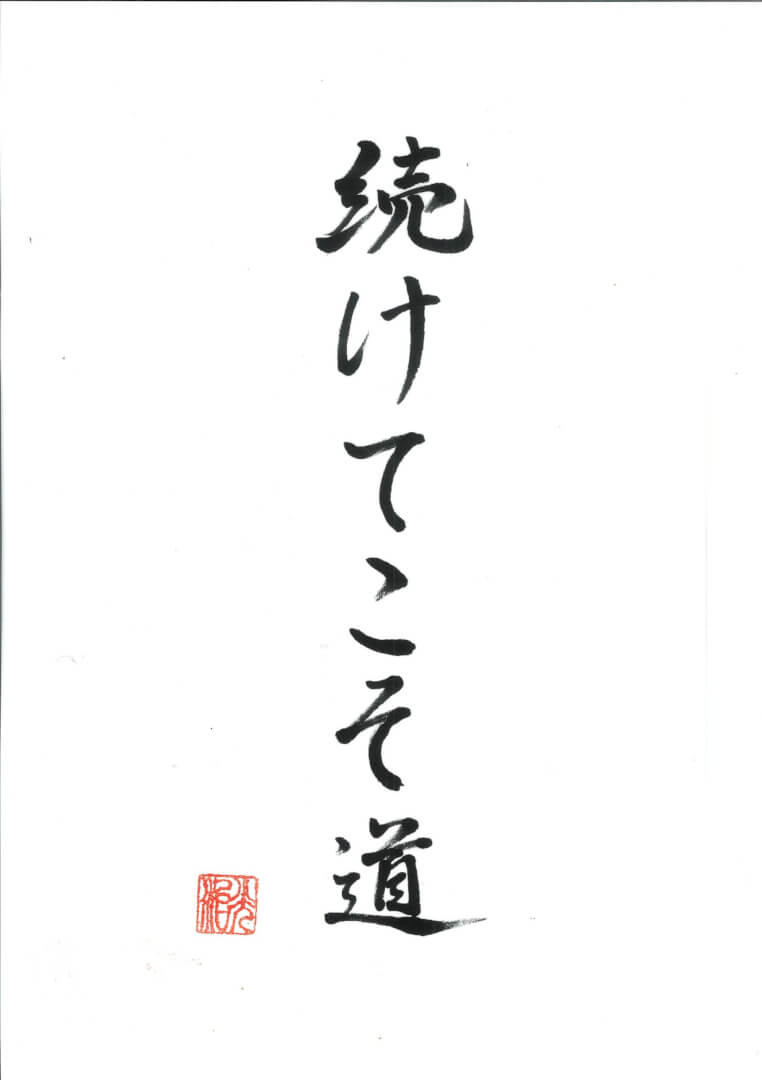 続けてこそ道